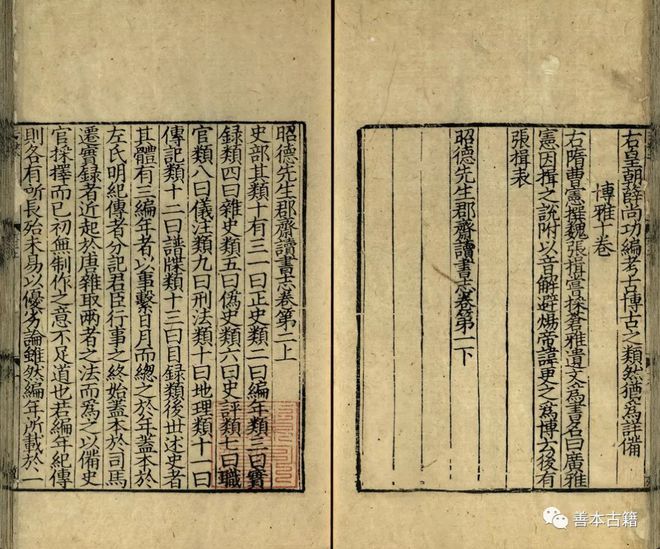 右皇朝薛尚功編考古博古之類然猶爲詳備
博雅十卷
右隋曹憲撰魏張揖嘗採蒼雅遺文爲書名曰廣雅
憲因揖之説附以音解避煬帝諱更之爲博云後有
張揖表
昭德先生郡齋讀書志卷第一下
昭德先生郡齋讀書志卷第二上
史部其類十有三一曰正史類二曰編年類三曰實
録類四曰雜史類五曰偽史類六曰史評類七曰職
官類八曰儀注類九曰刑法類十曰地理類十一曰
傳記類十二曰譜牒類十三曰目録類後世述史者
其體有三編年者以事繫日月而緫之於年蓋本於
左氏明紀傳者分記君臣行事之終始蓋本於司馬
遷實録者近起於唐雜取兩者之法而爲之以備史
官採擇而已初無制作之意不足道也若編年紀傳
則各有所長殆未易以優劣論雖然編年所載於一
善本古籍